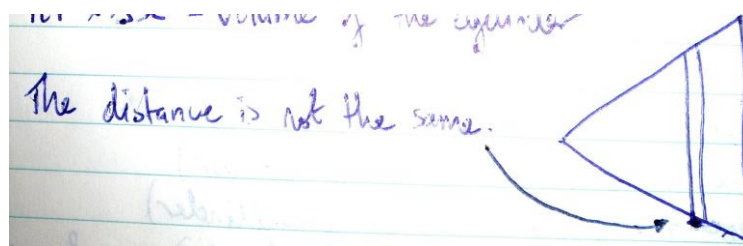 = volume of the cylinder
The distance is not the same.